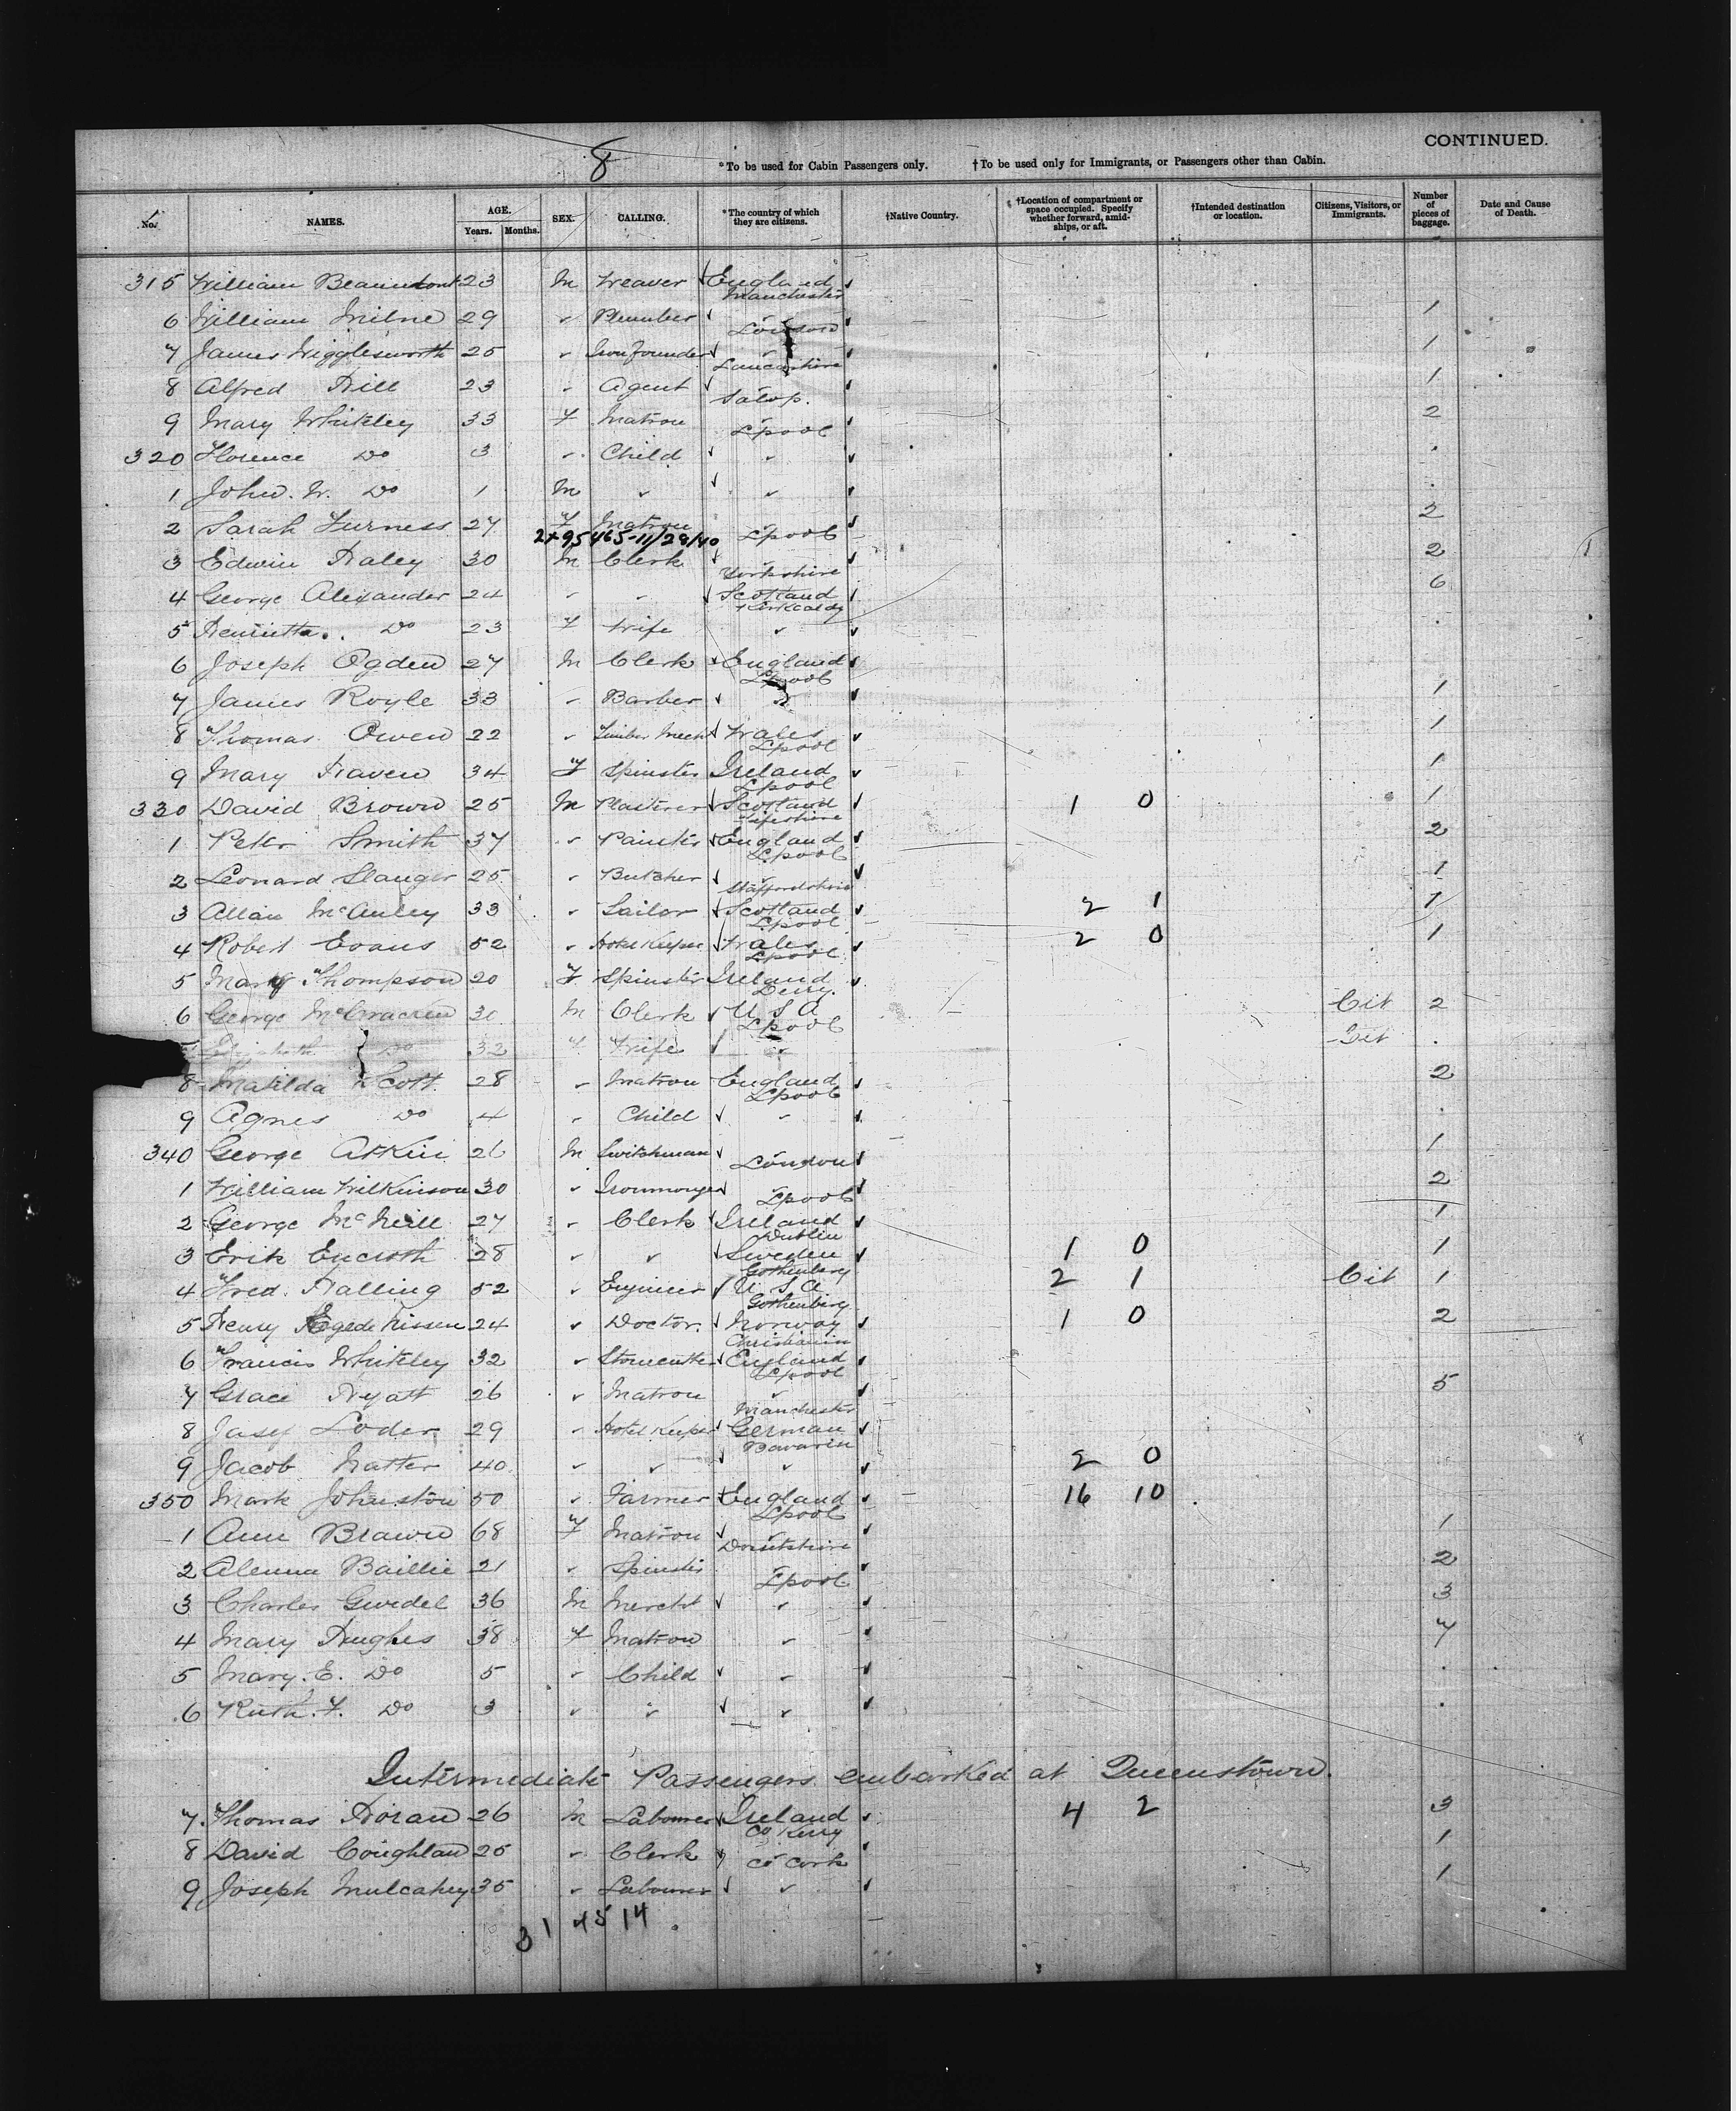 CONTINUED.
8 *To be used for Cabin Passengers only. †To be used only for Immigrants, or Passengers other than Cabin.
No. NAMES. AGE. Years. Months. SEX. CALLING. *The country of which they are citizens. †Native Country. †Location of compartment or space occupied. Specify whether forward, amidships, or aft. †Intended destination or location. Citizens, Visitors, or Immigrants. Number of pieces of baggage. Date and Cause of Death.
315 William Beaumont 23 M Weaver England Manchester
6 William Milne 29 " Plumber " London 1
7 James Wigglesworth 25 " Ironfounder " Lancashire 1
8 Alfred Hill 23 " Agent " Salop. 1
9 Mary Whiteley 33 F Matron " Lpool 2
320 Florence Do 3 " Child "
1 John. W. Do 1 M " "
2 Sarah Furness 27 F Matron " Lpool 2
2x95465-11/29/40
3 Edwin Haley 30 M Clerk " Yorkshire 2
4 George Alexander 24 " " Scotland Kirkcaldy 6
5 Henrietta. Do 23 F Wife "
6 Joseph Ogden 27 M Clerk England Lpool
7 James Royle 33 " Barber " 1
8 Thomas Owen 22 " Timber Mercht Wales Lpool 1
9 Mary Haven 34 F Spinster Ireland Lpool 1
330 David Brown 25 M Plasterer Scotland Fifeshire 1 0 1
1 Peter Smith 37 " Painter England Lpool 2
2 Leonard Slanger 25 " Butcher " Staffordshire 1
3 Allan McAuley 33 " Sailor Scotland Lpool 2 1 1
4 Robert Evans 52 " Hotel Keeper Wales Lpool 2 0 1
5 Mary Thompson 20 F Spinster Ireland Derry.
6 George McCracken 30 M Clerk U S A Lpool Cit 2
Elizabeth Do 32 F Wife " Cit
8 Matilda Scott 28 " Matron England Lpool 2
9 Agnes Do 4 " Child "
340 George Atkin 26 M Switchman " London 1
1 William Wilkinson 30 " Ironmonger " Lpool 2
2 George McNeill 27 " Clerk Ireland Dublin 1
3 Erik Encroth 28 " " Sweden Gothenberg 1 0 1
4 Fred. Halling 52 " Engineer U.S.A Gothenberg 2 1 Cit 1
5 Henry Egede Nissen 24 " Doctor. Norway Christiania 1 0 2
6 Francis Whiteley 32 " Stonecutter England Lpool
7 Grace Hyatt 26 " Matron " Manchester 5
8 Josef Loder 29 " Hotel Keeper German Bavaria
9 Jacob Natter 40 " " " 2 0
350 Mark Johnston 50 " Farmer England Lpool 16 10
1 Ann Brawn 68 F Matron " Dorsetshire 1
2 Baillie 21 " Spinster " Lpool 2
3 Charles 36 M Mercht " 3
4 Mary Hughes 38 F Matron " 7
5 Mary. E. Do 5 " Child "
6 Ruth. F. Do 3 " " "
Intermediate Passengers embarked at Queenstown.
7 Thomas Horan 26 M Labourer Ireland Co Kerry 4 2 3
8 David Coughlan 25 " Clerk " Co Cork 1
9 Joseph Mulcahey 35 " Labourer " 1
31 45 14